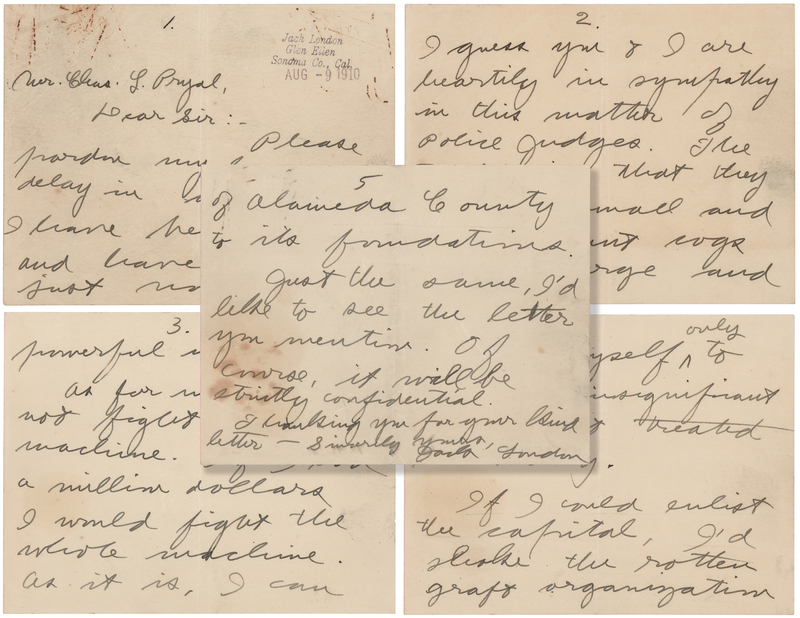 1.
Jack London
Glen Ellen
Sonoma Co., Cal.
AUG -9 1910
Mr. Chas. L. Pryal,
Dear Sir:-
Please
pardon my
delay in
I have be
and have
just
2.
I guess you & I are
heartily in sympathy
in this matter of
Police Judges. The
that they
small and
cogs
and
3.
powerful
As for m
not fight
machine.
a million dollars
I would fight the
whole machine.
As it is, I can
only
myself ^ to
insignificant
treated
If I could enlist
the capital, I'd
shake the rotten
graft organization
5
of Alameda County
to its foundations.
Just the same, I'd
like to see the letter
you mention. Of
course, it will be
strictly confidential.
Thanking you for your kind
letter — Sincerely yours,
Jack London.